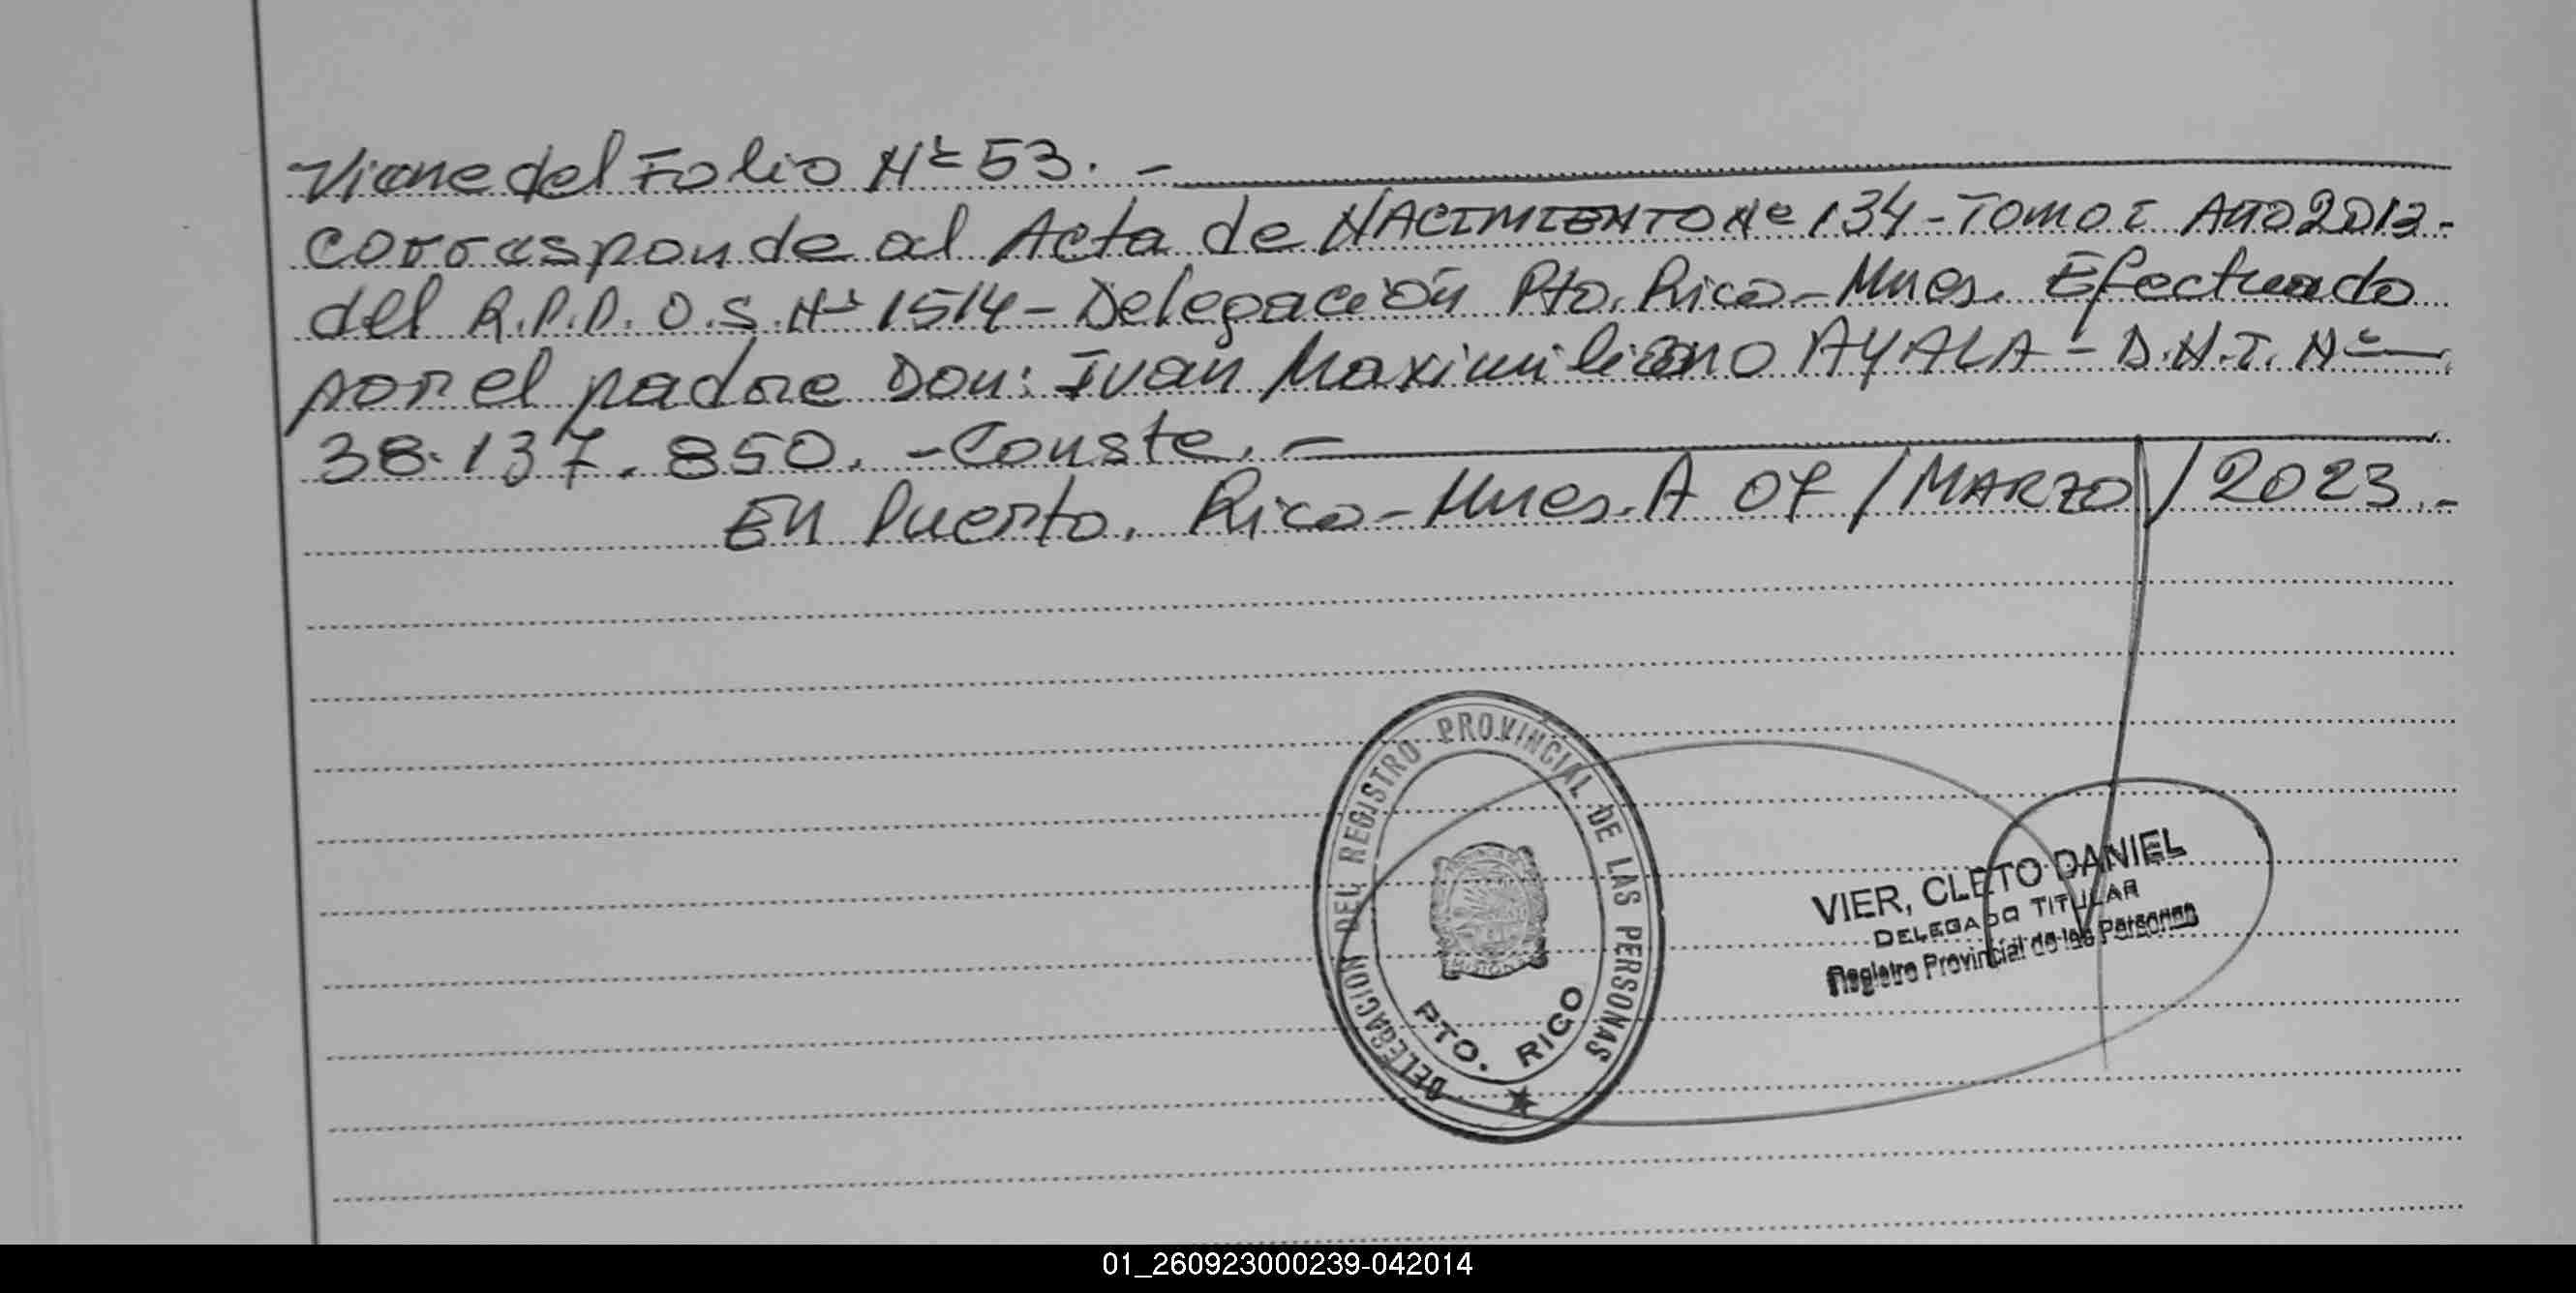 Viene del Folio Nº 53. -
corresponde al Acta de NACIMIENTO Nº 134 - Tomo I Año 2013 -
del R.P.P. O.S. Nº 1514 - Delegación Pto. Rico - Mnes. Efectuado
por el padre Don: Ivan Maximiliano AYALA - D.N.I. Nº
38.137.850. - Conste. -
EN Puerto. Rico - Mnes. A 07 / MARZO / 2023. -
DELEGACION DEL REGISTRO PROVINCIAL DE LAS PERSONAS
PTO. RICO
VIER, CLETO DANIEL
DELEGADO TITULAR
Registro Provincial de las Personas
01_260923000239-042014